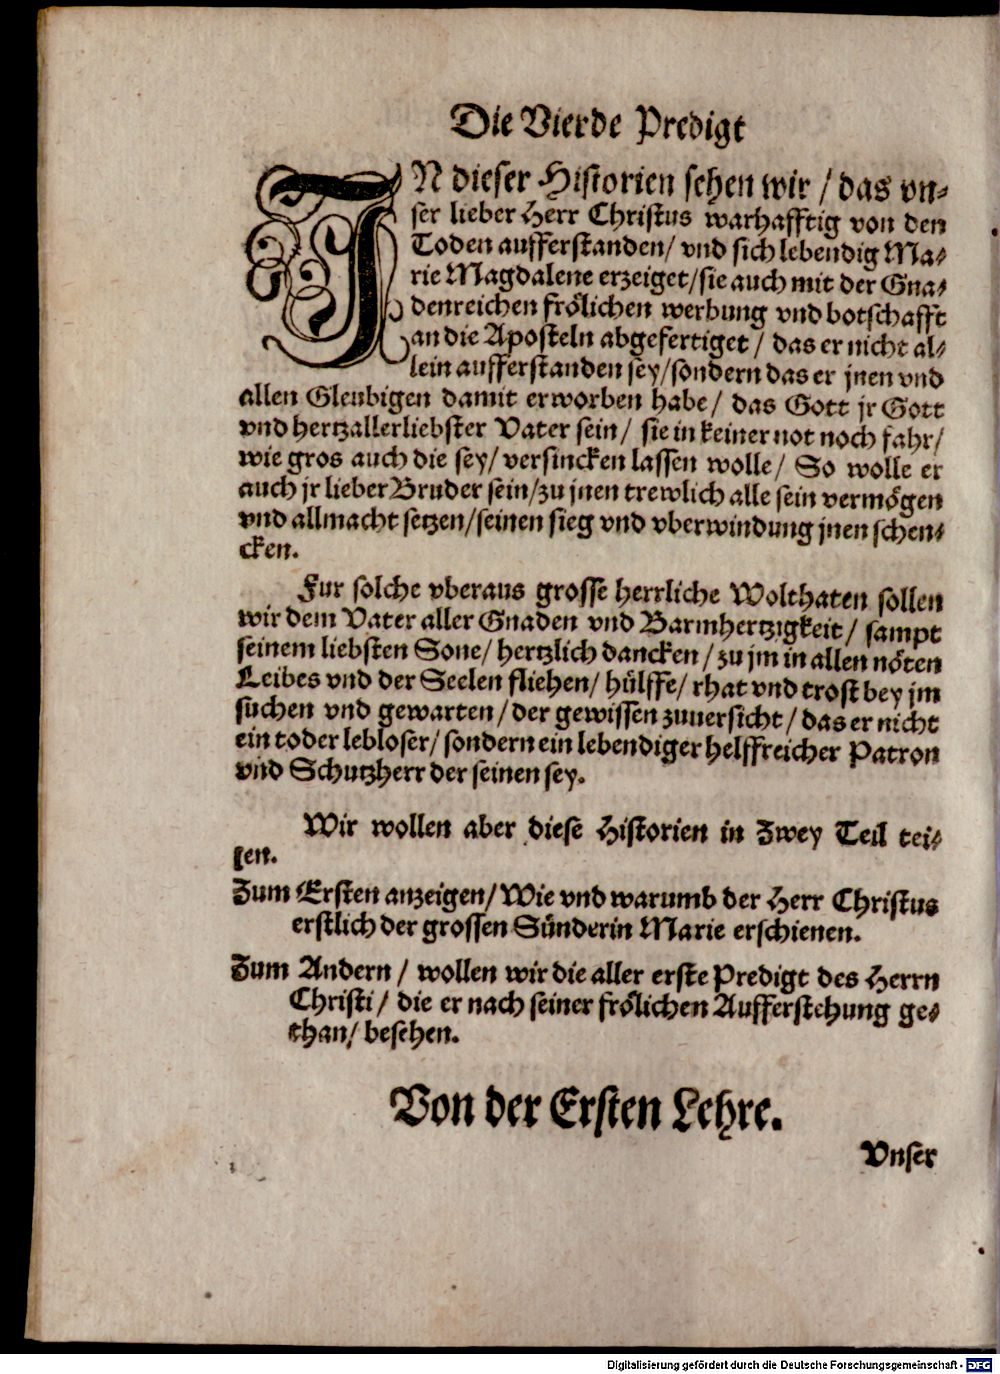 Die Vierde Predigt
IN dieser Historien sehen wir / das vn-
ser lieber Herr Christus warhafftig von den
Toden aufferstanden / vnd sich lebendig Ma-
rie Magdalene erzeiget / sie auch mit der Gna-
denreichen frölichen werbung vnd botschafft
an die Aposteln abgefertiget / das er nicht al-
lein aufferstanden sey / sondern das er jnen vnd
allen Gleubigen damit erworben habe / das Gott jr Gott
vnd hertzallerliebster Vater sein / sie in keiner not noch fahr /
wie gros auch die sey / versincken lassen wolle / So wolle er
auch jr lieber Bruder sein / zu jnen trewlich alle sein vermögen
vnd allmacht setzen / seinen sieg vnd vberwindung jnen schen-
cken.
Fur solche vberaus grosse herrliche Wolthaten sollen
wir dem Vater aller Gnaden vnd Barmhertzigkeit / sampt
seinem liebsten Sone / hertzlich dancken / zu jm in allen nöten
Leibes vnd der Seelen fliehen / hülffe / rhat vnd trost bey jm
suchen vnd gewarten / der gewissen zuuersicht / das er nicht
ein toder lebloser / sondern ein lebendiger helffreicher Patron
vnd Schutzherr der seinen sey.
Wir wollen aber diese Historien in Zwey Teil tei-
len.
Zum Ersten anzeigen / Wie vnd warumb der Herr Christus
erstlich der grossen Sünderin Marie erschienen.
Zum Andern / wollen wir die aller erste Predigt des Herrn
Christi / die er nach seiner frölichen Aufferstehung ge-
than / besehen.
Von der Ersten Lehre.
Vnser
Digitalisierung gefördert durch die Deutsche Forschungsgemeinschaft - DFG